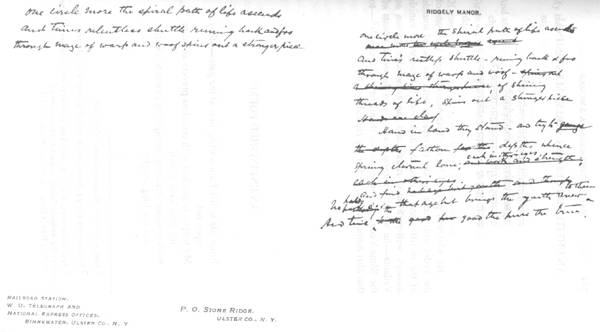 one circle more the spiral path of life ascends
And time's restless shuttle running back and fro
through maze of warp and woof spins out a stronger piece
RAILROAD STATION,
W. U. TELEGRAPH AND
NATIONAL EXPRESS OFFICES,
BINNEWATER, ULSTER CO., N. Y.
P. O. STONE RIDGE,
ULSTER CO., N. Y.
RIDGELY MANOR.
one circle more the spiral path of life ascends
And time's restless shuttle - running back & fro
through maze of warp and woof -
of shining
threads of life, spins out a stronger piece
Hand in hand they stand - and try to
fathom depths whence
springs eternal love, each in others eyes
And find
to them
No hold that age but brings the youth anew
And time the good the pure the true.